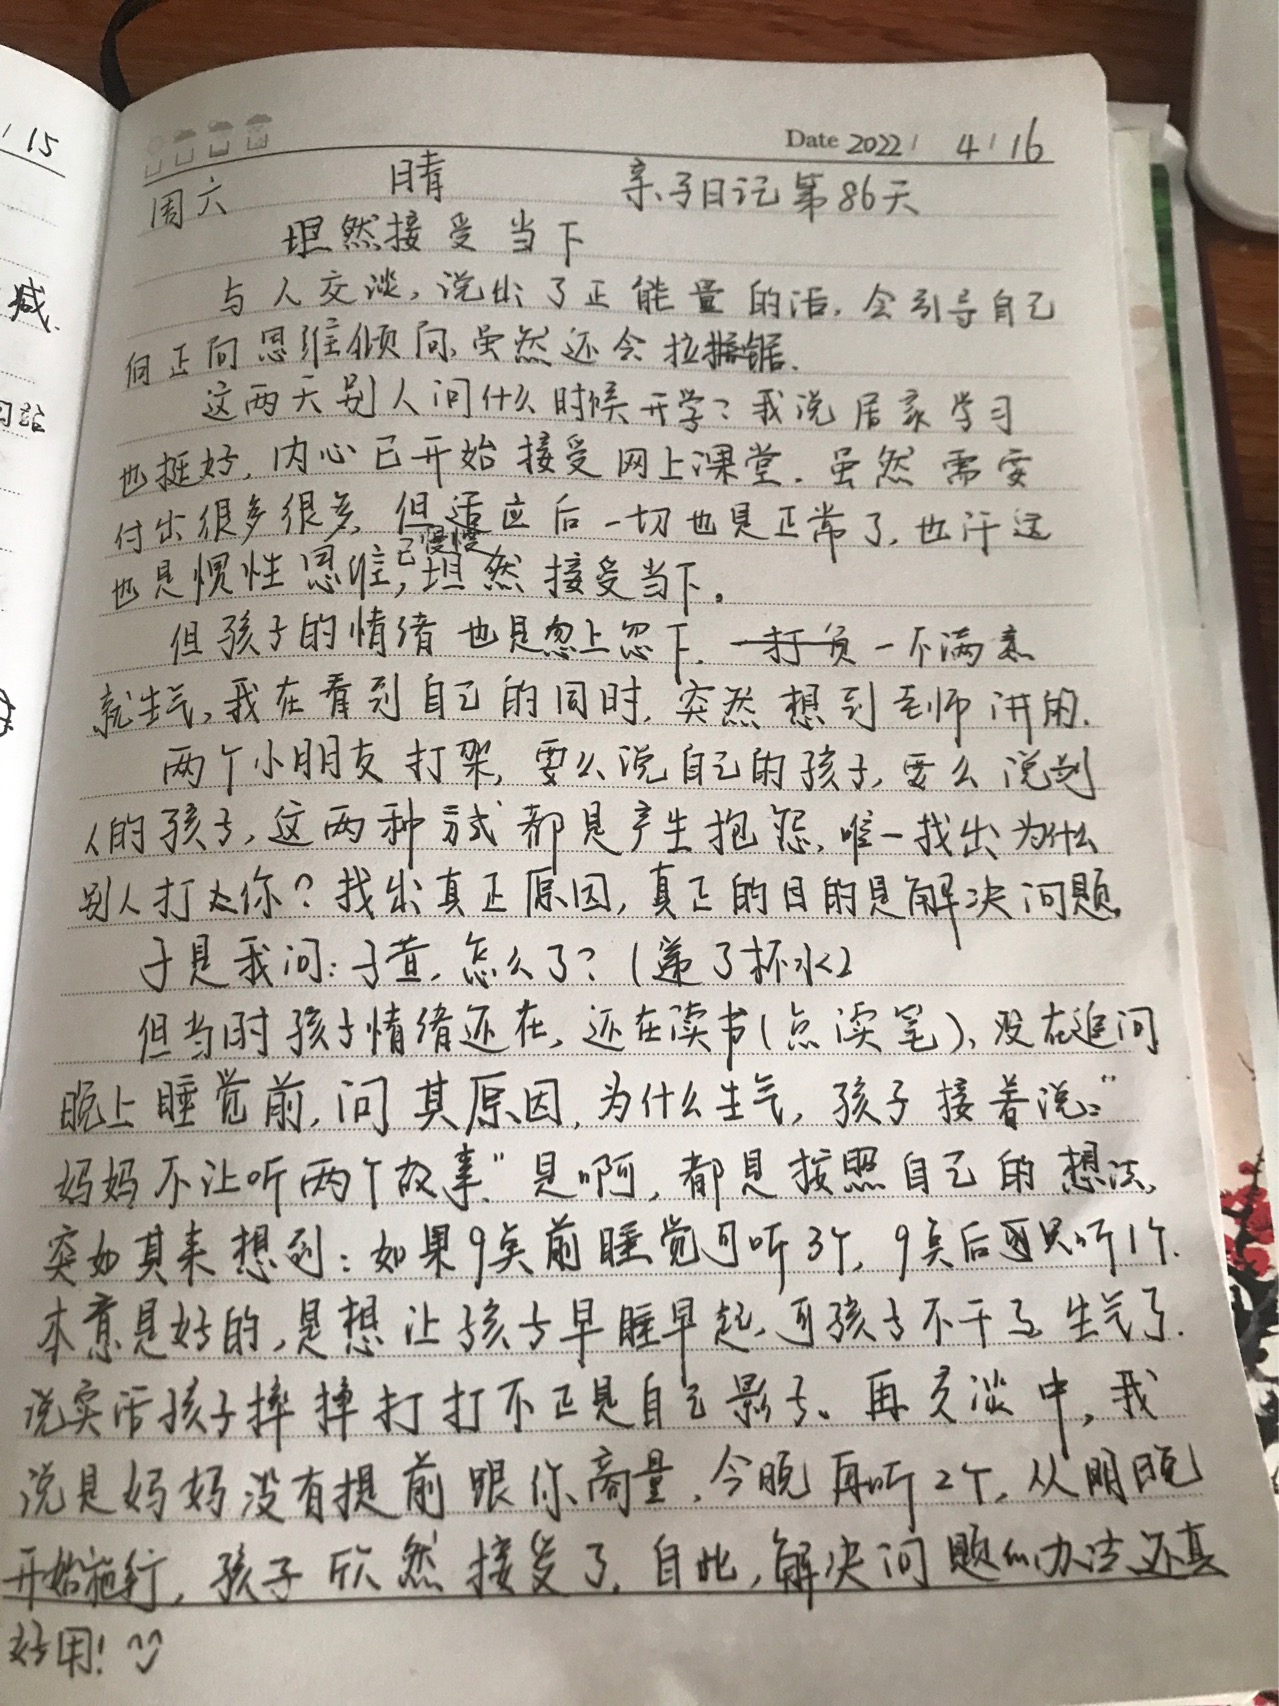 15
减.
Date 2022 / 4 / 16
周六 晴 亲子日记第86天
坦然接受当下
与人交谈,说出了正能量的话,会引导自己
向正向思维倾向,虽然还会拉锯.
这两天别人问什么时候开学?我说居家学习
也挺好,内心已开始接受网上课堂.虽然需要
付出很多很多,但适应后一切也是正常了,也许这
也是惯性思维,已慢慢坦然接受当下。
但孩子的情绪也是忽上忽下.一打负一不满意
就生气,我在看到自己的同时,突然想到老师讲的.
两个小朋友打架,要么说自己的孩子,要么说别
人的孩子,这两种方式都是产生抱怨,唯一找出为什么
别人打你?找出真正原因,真正的目的是解决问题。
于是我问:子萱,怎么了?(递了杯水)
但当时孩子情绪还在,还在读书(点读笔),没在追问
晚上睡觉前,问其原因,为什么生气,孩子接着说:“
妈妈不让听两个故事.”是啊,都是按照自己的想法,
突如其来想到:如果9点前睡觉可听3个,9点后只听1个.
本意是好的,是想让孩子早睡早起,可孩子不干了,生气了.
说实话孩子摔摔打打不正是自己影子。再交谈中,我
说是妈妈没有提前跟你商量,今晚再听2个,从明晚
开始施行,孩子欣然接受了.自此,解决问题的办法还真
好用!